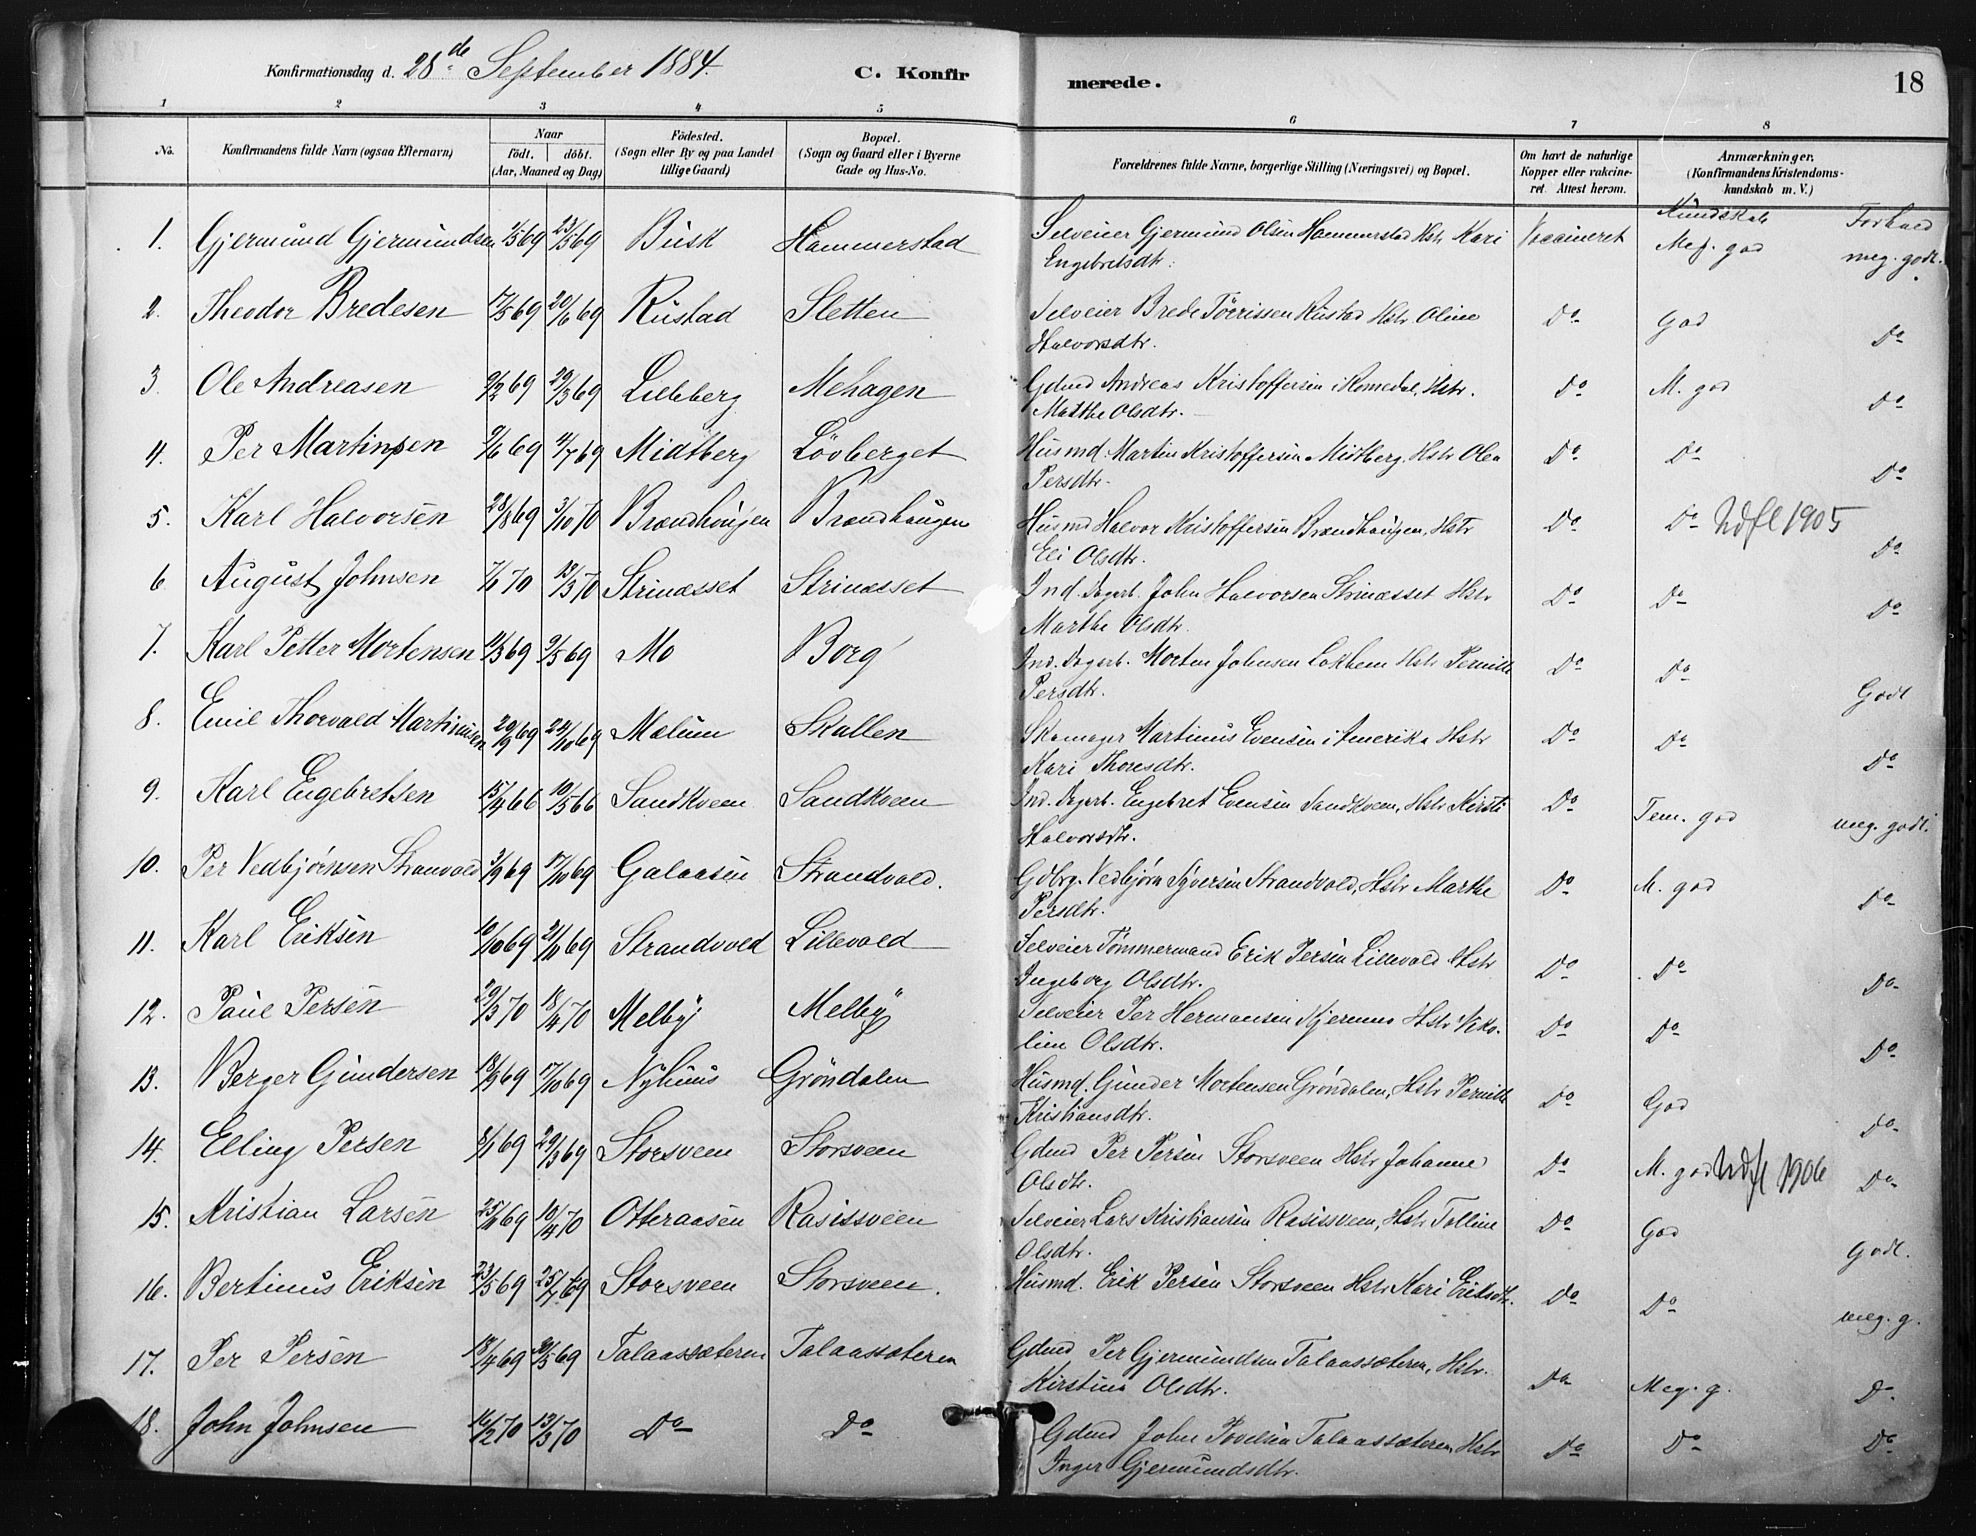 Konfirmationsdag d. 28de September 1884. C. Konfirmerede. 18
1 2 3 4 5 6 7 8
No. Konfirmandens fulde Navn (ogsaa Efternavn) Naar födt. döbt. (Aar, Maaned og Dag) Födested. (Sogn eller By og paa Landet tillige Gaard) Bopæl. (Sogn og Gaard eller i Byerne Gade og Hus-No. Forældrenes fulde Navne, borgerlige Stilling (Næringsvei) og Bopæl. Om havt de naturlige Kopper eller vaccineret. Attest herom. Anmærkninger. (Konfirmandens Kristendomskundskab m. V.)
Kundskab Forhold
1. Gjermund Gjermundsen 2/5 69 23/5 69 Busk Hammerstad Selveier Gjermund Olsen Hammerstad Hstr Kari Vaccineret Meg. god meg. godt.
Engebretsdtr.
2. Theodor Bredesen 17/5 69 20/6 69 Rustad Sletten Selveier Brede Törrissen Rustad Hstr Oline Do God Do
Halvorsdtr.
3. Ole Andreasen 9/2 69 29/3 69 Lilleberg Mehagen Gdmd Andreas Kristoffersen i Romedal, Hstr. Do M. god Do
Marthe Olsdtr.
4. Per Martinsen 9/6 69 4/7 69 Midtberg Lövberget Husmd. Martin Kristoffersen Midtberg, Hstr Olea Do Do Do
Persdtr.
5. Karl Halvorsen 28/8 69 3/10 70 Brændhaugen Brændhaugen Husmd Halvor Kristoffersen Brændhaugen, Hstr Do Do Udfl 1905 Do
Eli Olsdtr.
6. August Johnsen 7/1 70 13/3 70 Strinæsset Strinæsset Ind. Dagarb. John Halvorsen Strinæsset Hstr Do Do Do
Marthe Olsdtr.
7. Karl Petter Mortensen 9/5 69 Mo Borg Ind. Dagarb. Morten Johnsen Hstr Pernille Do Do Godt
Persdtr.
8. Emil Thorvald Martinusen 20/9 69 24/10 69 Mælum Skallen Skomager Martinus Evensen i Amerika Hstr Do Do Do
Kari Thoresdtr.
9. Karl Engebretsen 15/4 66 10/5 66 Sandkveen Sandkveen Ind. Dagarb. Engebret Evensen Sandkveen, Hstr Kirsti Do Tem. god meg. godt.
Halvorsdtr.
10. Per Vedbjörnsen Strandvold 3/9 69 17/10 69 Galaasen Strandvold. Gdbrg. Vedbjörn Syversen Strandvold, Hstr Marthe Do M. god Do
Persdtr.
11. Karl Eriksen 10/10 69 21/11 69 Strandvold Lillevold Selveier Tömmermand Erik Persen Lillevold Hstr Do Do Do
Ingeborg Olsdtr.
12. Paul Persen 29/3 70 18/4 70 Melby Melby Selveier Per Hermansen Hstr Niko- Do Do Do
line Olsdtr.
13. Berger Gundersen 18/9 69 17/10 69 Nyhuus Gröndalen Husmd. Gunder Mortensen Gröndalen, Hstr Pernille Do God Do
Kristiansdtr.
14. Elling Persen 8/1 69 29/3 69 Storsveen Storsveen Gdmd Per Persen Storsveen Hstr Johanne Do M. god Udfl 1906 Do
Olsdtr.
15. Kristian Larsen 25/11 69 10/4 70 Otteraasen Rasissveen Selveier Lars Kristiansen Rasissveen, Hstr Tolline Do God Godt.
Olsdtr.
16. Bertinus Eriksen 23/5 69 25/7 69 Storsveen Storsveen. Husmd. Erik Persen Storsveen Hstr Kari Eriksdtr. Do Do meg. g.
17. Per Persen 18/4 69 2/5 69 Talaassæteren Talaassæteren Gdmd Per Gjermundsen Talaassæteren, Hstr. Do Meg. g. Do
Kirstine Olsdtr.
18. John Johnsen 16/2 70 13/3 70 Do Do Gdmd John Povelsen Talaassæteren, Hstr Do Do Do
Inger Gjermundsdtr.